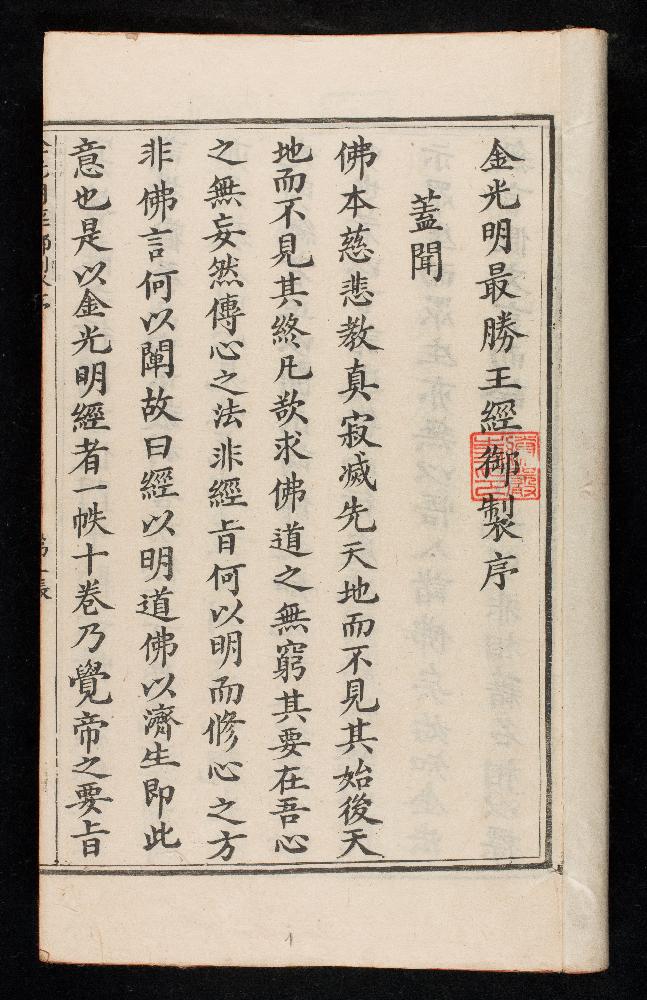 金光明最勝王經御製序
蓋聞
佛本慈悲教真寂滅先天地而不見其始後天
地而不見其終凡欲求佛道之無窮其要在吾心
之無妄然傳心之法非經旨何以明而修心之方
非佛言何以闡故曰經以明道佛以濟生即此
意也是以金光明經者一帙十卷乃覺帝之要旨
1